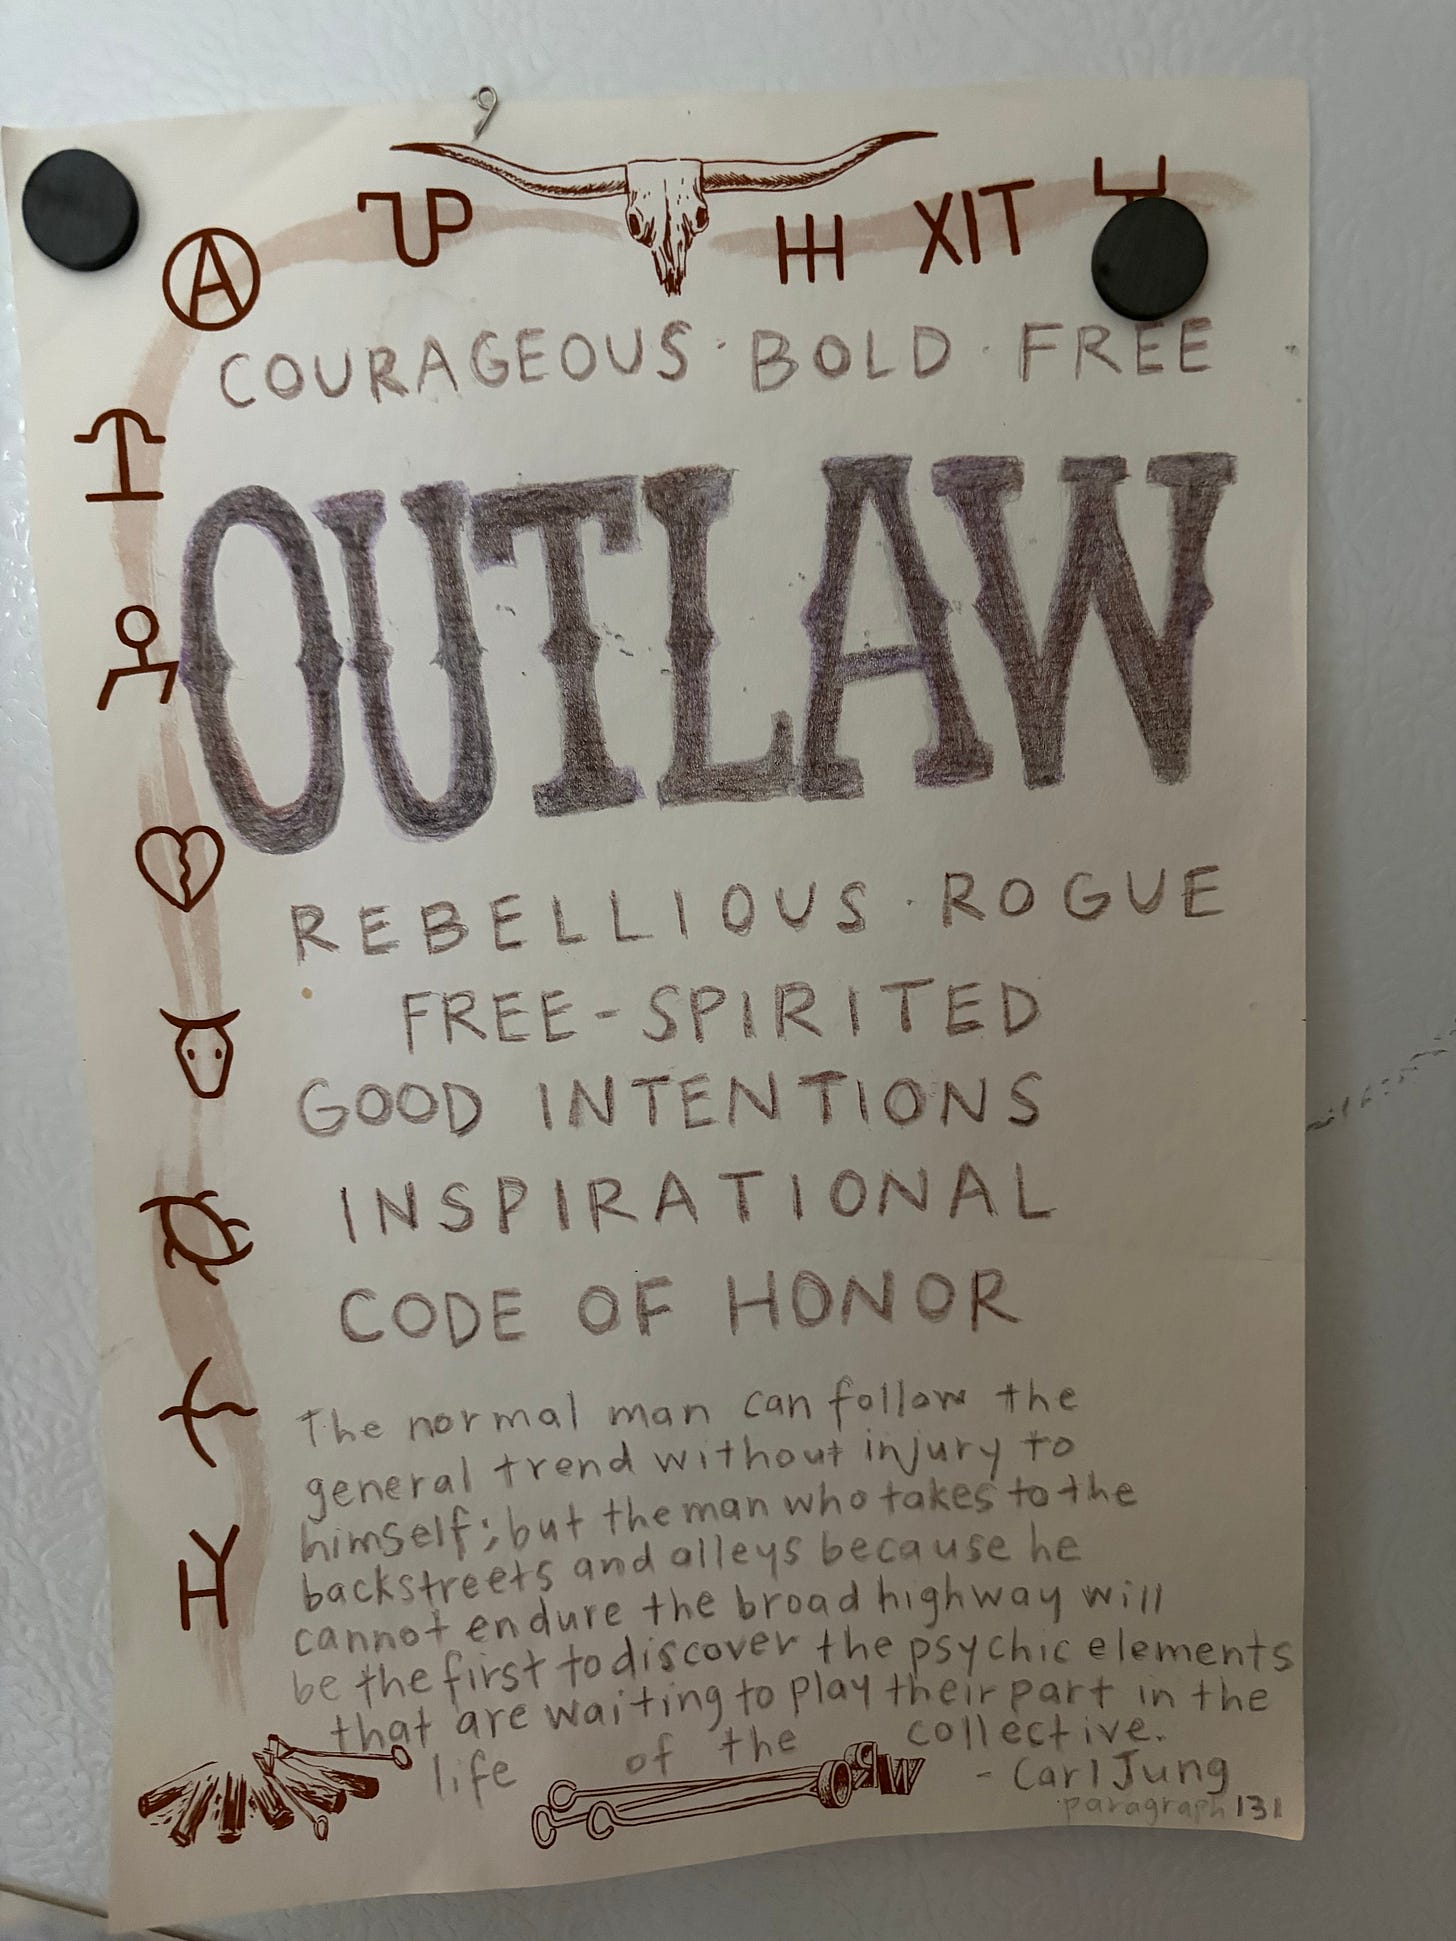 A
UP
XIT
COURAGEOUS · BOLD · FREE
OUTLAW
REBELLIOUS · ROGUE
FREE-SPIRITED
GOOD INTENTIONS
INSPIRATIONAL
CODE OF HONOR
The normal man can follow the
general trend without injury to
himself; but the man who takes to the
backstreets and alleys because he
cannot endure the broad highway will
be the first to discover the psychic elements
that are waiting to play their part in the
life of the collective.
- Carl Jung
paragraph 131